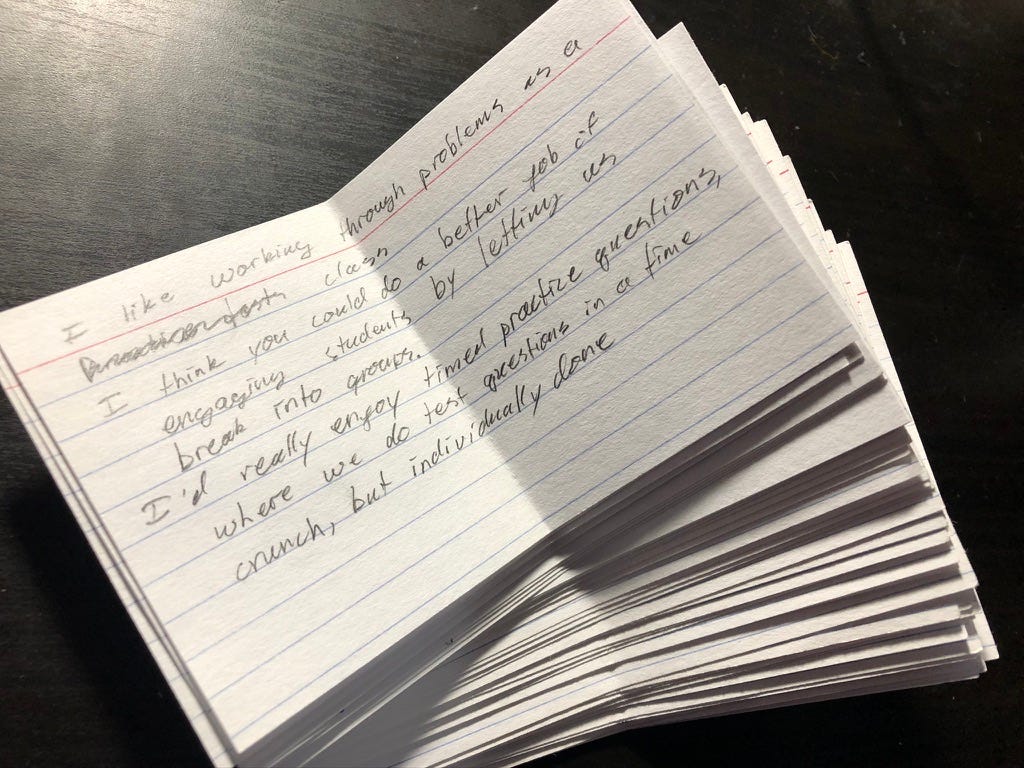 I like working through problems as a
class
I think you could do a better job if
engaging students by letting us
break into groups.
I'd really enjoy timed practice questions,
where we do test questions in a time
crunch, but individually done